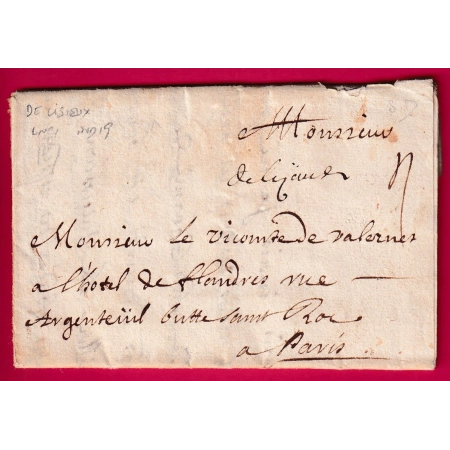 DE LISIEUX
Monsieur
Monsieur le vicomte de valernes
a l'hôtel de flandres rue
Argenteüil butte saint Roc
a Paris